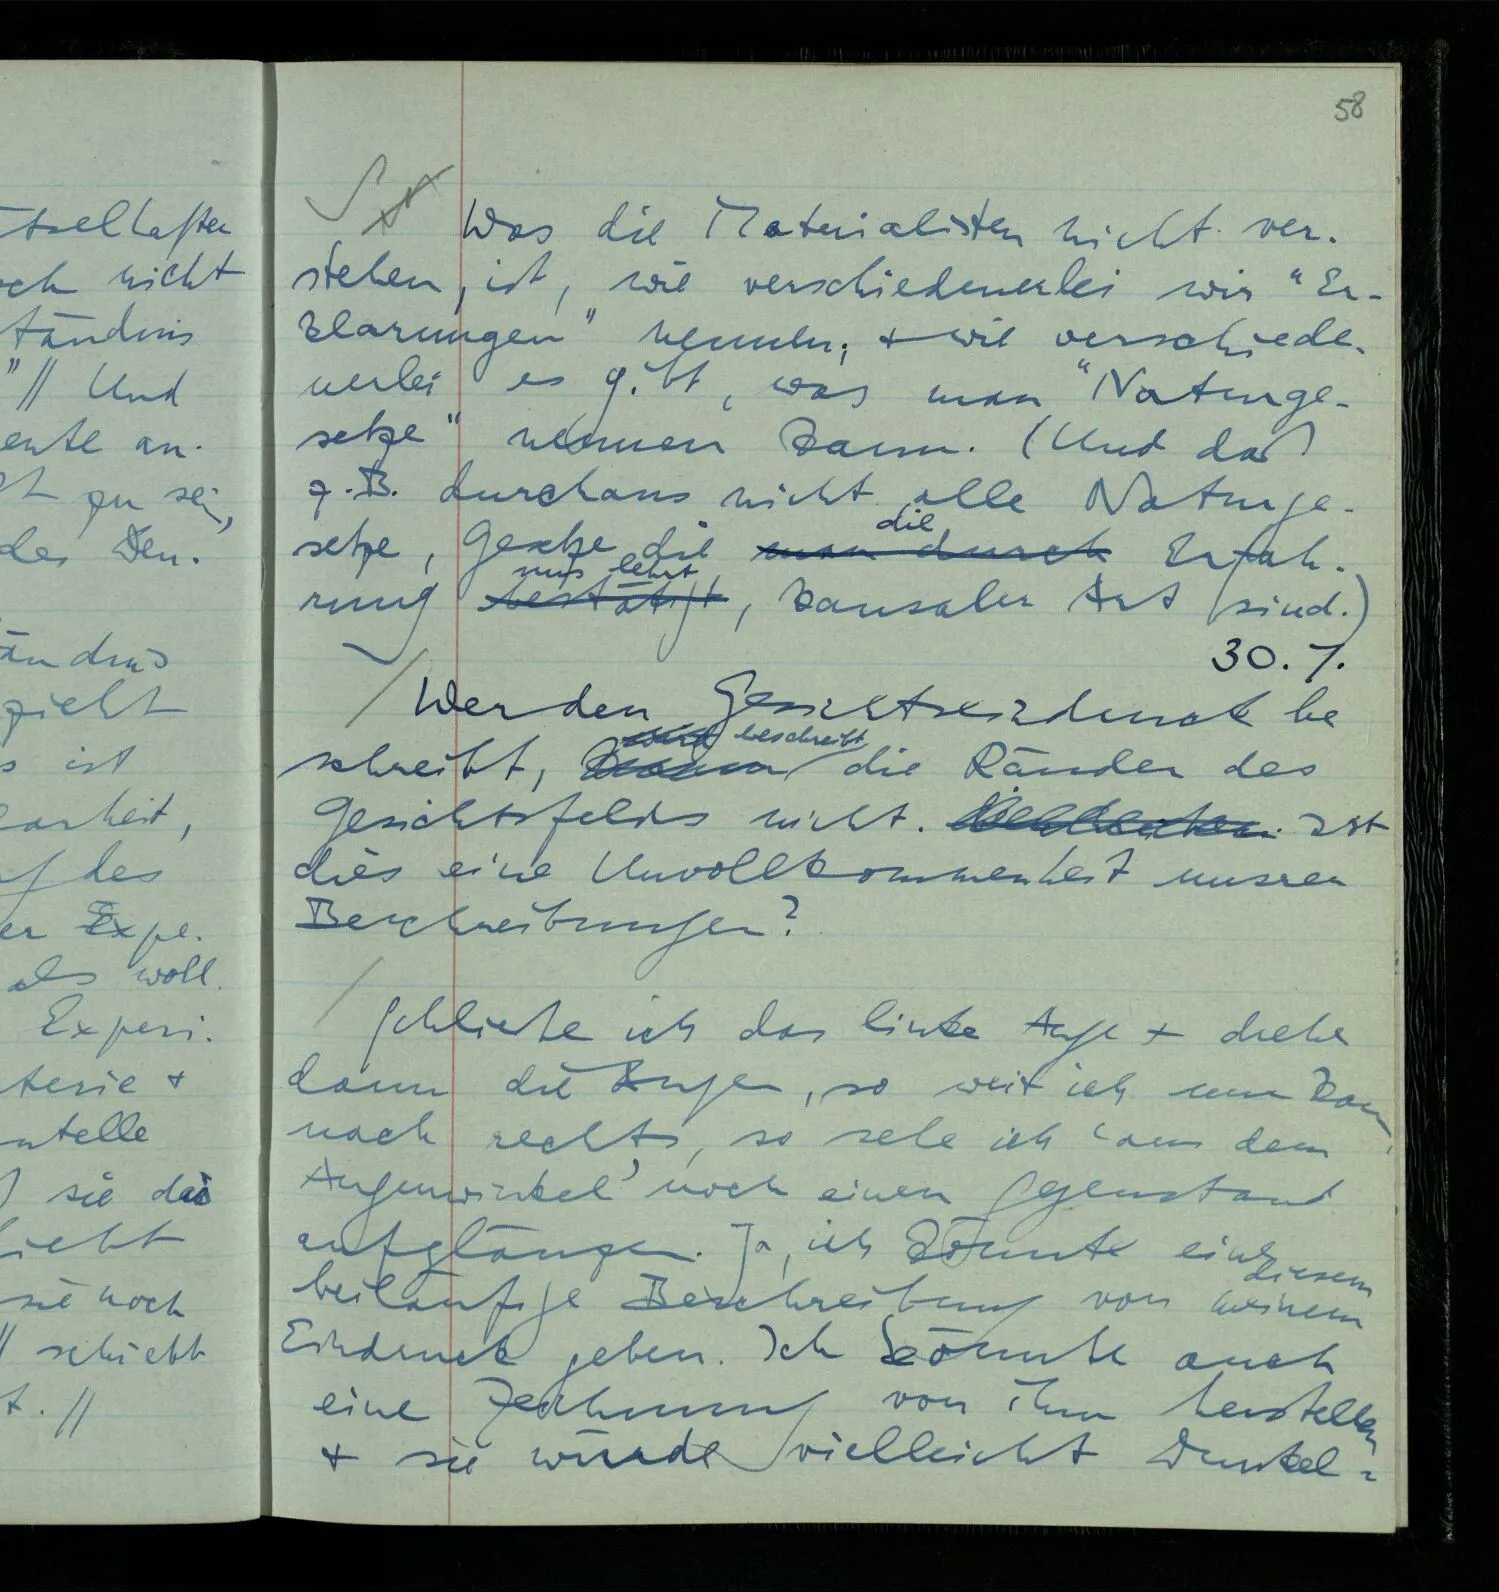 tselhaften
och nicht
tändnis
"// Und
ente an-
zu sein,
des Den-
ändnis
zieht
s ist
arheit,
f des
er Expe-
als woll
Experi-
terie +
ntelle
sie das
sie noch
// schiebt
t. //
58
Was die Materialisten nicht ver-
stehen, ist, wie verschiedenerlei wir "Er-
klärungen" nennen; + wie verschiede-
nerlei es gibt, was man "Naturge-
setze" nennen kann. (Und daß
z.B. durchaus nicht alle Naturge-
setze, Gesetze die man durch die Erfah-
rung bestätigt uns lehrt, kausaler Art sind.)
30.7.
Wer den Gesichtseindruck be
schreibt, wird beschreibt die Ränder des
Gesichtsfelds nicht. Ist
dies eine Unvollkommenheit unserer
Beschreibungen?
Schließe ich das linke Auge + drehe
dann die Augen, so weit ich nur kann,
nach rechts, so sehe ich 'aus dem
Augenwinkel' noch einen Gegenstand
aufglänzen. Ja, ich könnte eine
beiläufige Beschreibung von meinem diesem
Eindruck geben. Ich könnte auch
eine Zeichnung von ihm herstellen
+ sie würde vielleicht Dunkel-